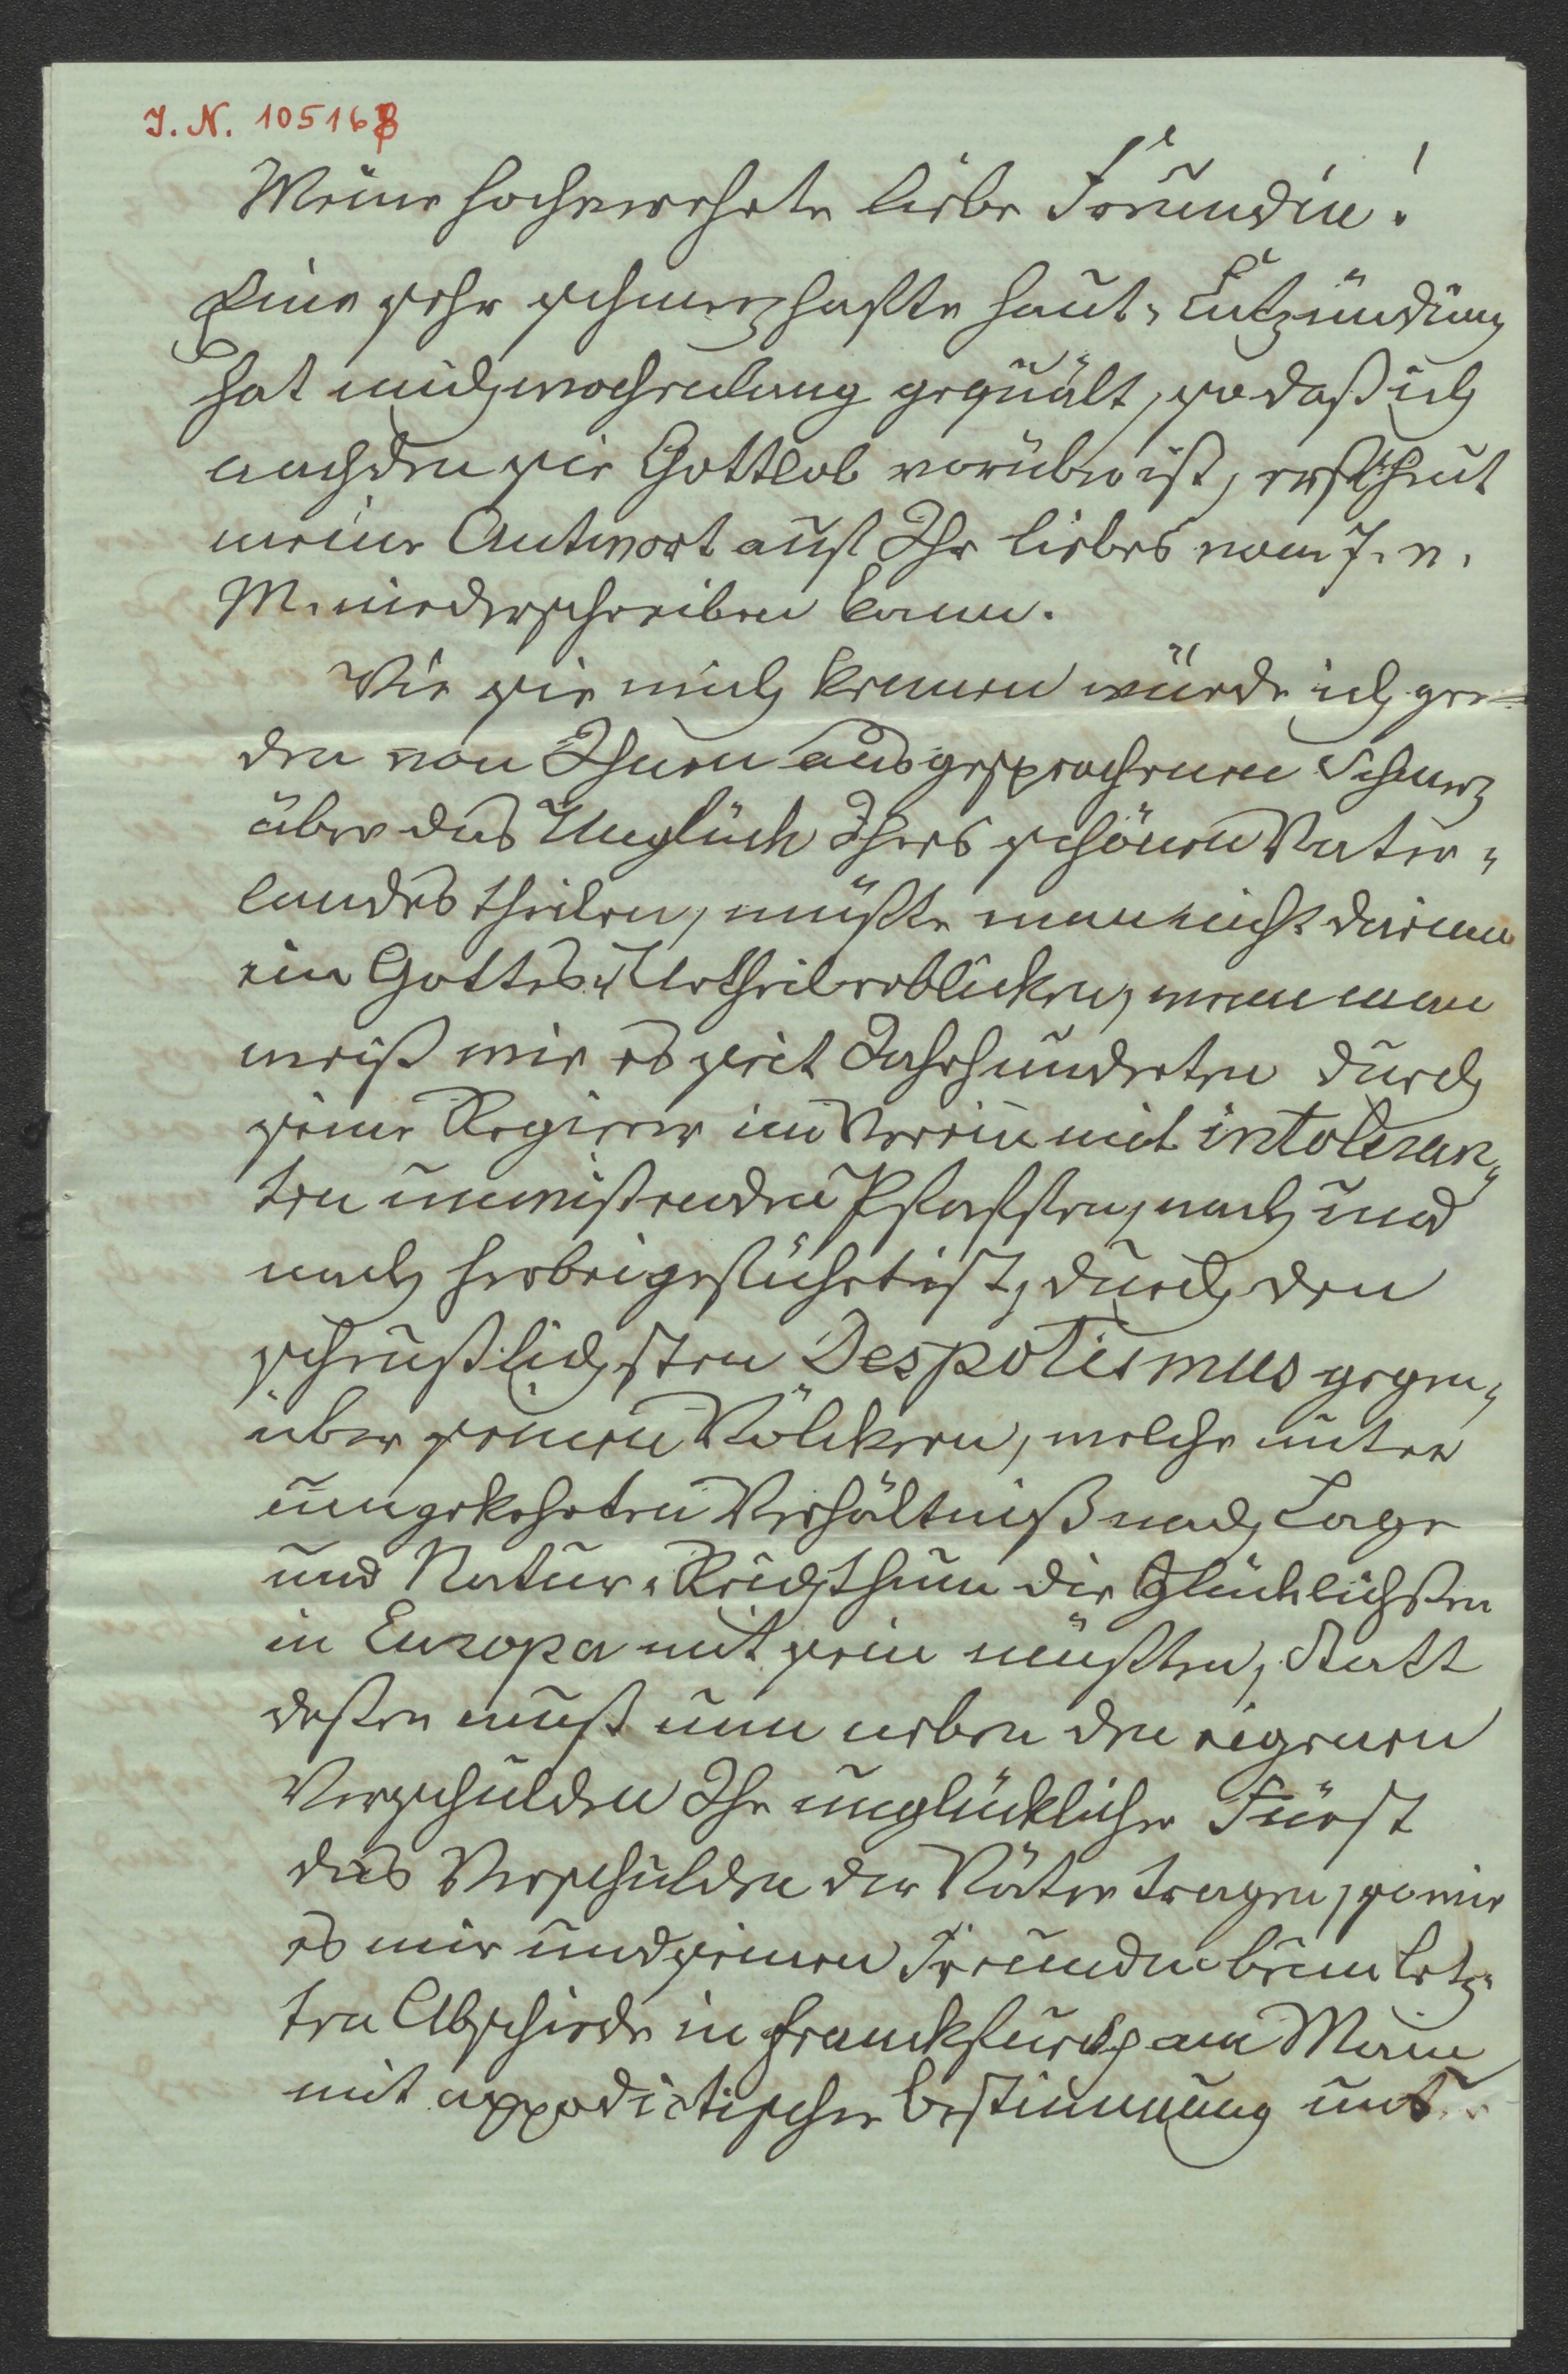 J. N. 105168
Meine hochverehrte liebe Freundin!
Eine sehr schmerzhafte Haut-Entzündung
hat mich wochenlang gequält, so daß ich
nachdem sie Gottlob vorüber ist, erst heut
meine Antwort auf Ihr liebes vom 7. v.
M. niederschreiben kann.
Wie sie mich kennen würde ich gern
den von Ihnen ausgesprochenen Schmerz
über das Unglück Ihres schönen Vater-
landes theilen, müßte man nicht darinn
ein Gottes-Urtheil erblicken, wenn man
weiß wie es seit Jahrhunderten durch
seine Regierer im Verein mit intoleran-
ten unwissenden Pfaffen, nach und
nach herbeigeführt ist, durch den
scheußlichsten Despotismus gegen-
über seinen Völkern, welche unter
umgekehrten Verhältniß nach Lage
und Natur-Reichthum die Glücklichsten
in Europa mit sein müßten, Statt
dessen muß nun neben den eigenen
Verschulden Ihr unglücklicher Fürst
das Verschulden der Väter tragen, so wie
es mir und seinen Freunden beim letz-
ten Abschiede in Franckfurth am Main
mit appodictischer Bestimmung